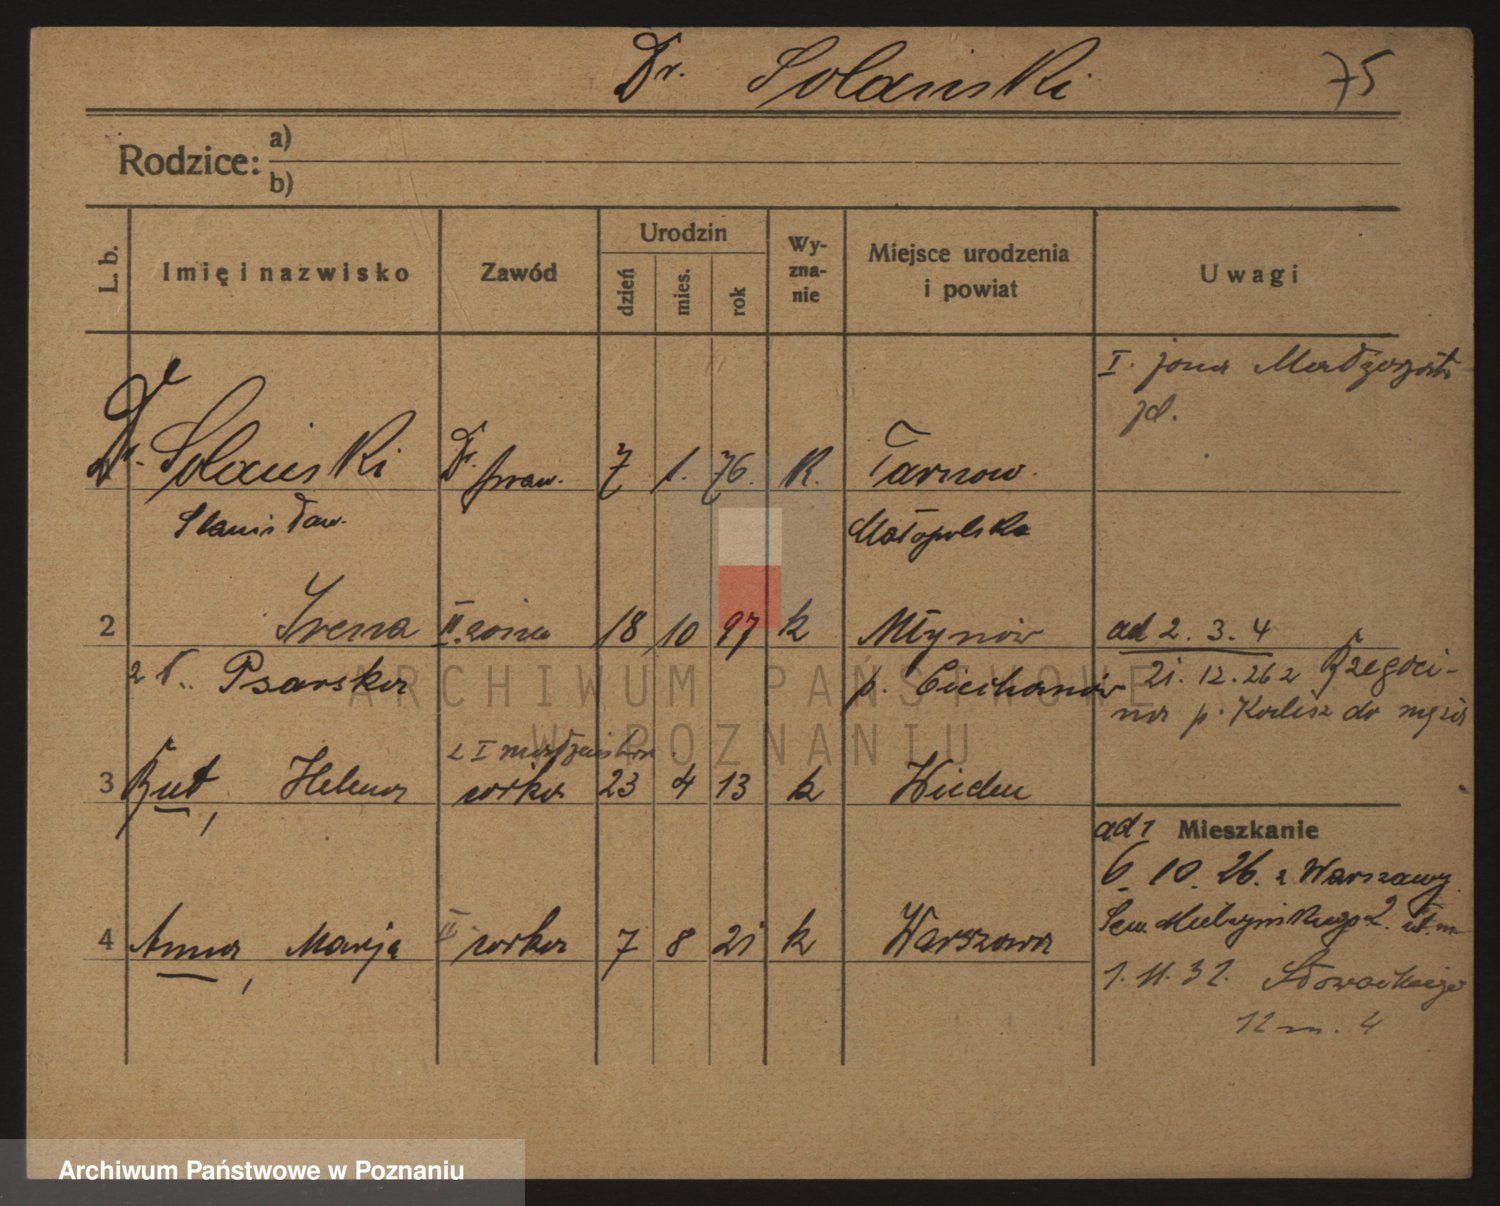 Dr. Solański 75
Rodzice: a)
b)
L. b. Imię i nazwisko Zawód Urodzin Wy-zna-nie Miejsce urodzenia i powiat Uwagi
dzień mies. rok
I. żona Małgorzata
Dr. Solański Dr. praw. 7 1. 76. R. Tarnow.
Stanisław. Małopolska
2 Irena II. żona 18 10 97 k Młynów ad 2. 3. 4
z d. Psarska p. Ciechanów 21. 12. 26 z Rzegoci-
na p. Kalisz do męża
z I małżeństwa.
3 Rut, Helena córka 23 4 13 k Wieden
ad 1 Mieszkanie
6. 10. 26. z Warszawy.
4 Anna, Marja II córka 7 8 21 k Warszawa Sew. Mielżyńskiego 2.
1. 11. 32. Słowackiego
12 m. 4
ARCHIWUM PAŃSTWOWE
W POZNANIU
Archiwum Państwowe w Poznaniu